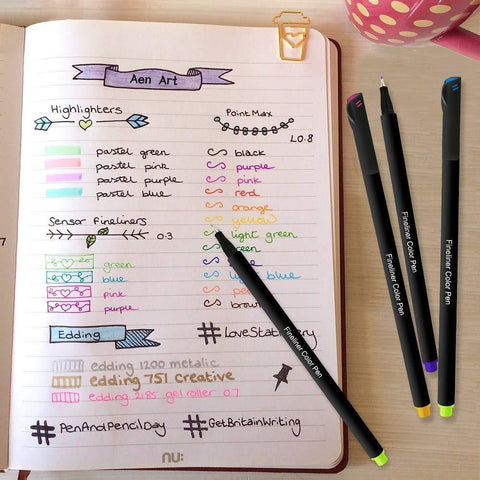 Aen Art
Highlighters
pastel green
pastel pink
pastel purple
pastel blue
Sensor fineliners
0.3
green
blue
pink
purple
Edding
edding 1200 metalic
edding 751 creative
edding 2185 gel roller 0.7
#PenAndPencilDay
PointMax
L0.8
black
purple
pink
red
orange
yellow
light green
green
blue
light blue
brown
#LoveStationery
#GetBritainWriting
nu:
7
Fineliner Color Pen
Fineliner Color Pen
Fineliner Color Pen
Fineliner Color Pen